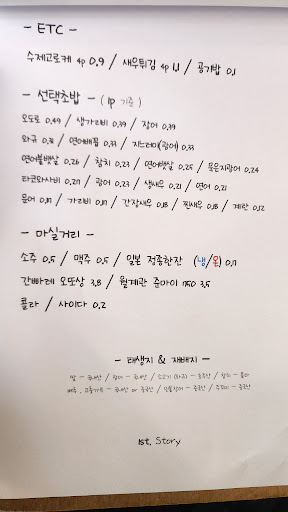 - ETC -
수제고로케 4p 0.9 / 새우튀김 4p 1.1 / 공기밥 0.1
- 선택초밥 - ( 1p 기준 )
오도로 0.49 / 생가리비 0.39 / 장어 0.39
와규 0.36 / 연어배꼽 0.33 / 지느러미(광어) 0.33
연어뱃살 0.26 / 참치 0.23 / 연어뱃살 0.25 / 묵은지광어 0.24
타코와사비 0.27 / 광어 0.23 / 생새우 0.21 / 연어 0.21
문어 0.17 / 가리비 0.17 / 간장새우 0.18 / 찐새우 0.18 / 계란 0.12
- 마실거리 -
소주 0.5 / 맥주 0.5 / 일본 정종한잔 (냉/온) 0.7
간빠레 오또상 3.8 / 월계관 준마이 750 3.5
콜라 / 사이다 0.2
- 태생지 & 재배지 -
쌀 - 국내산 / 광어 - 국내산 / 소고기 (와규) - 호주산
1st. Story